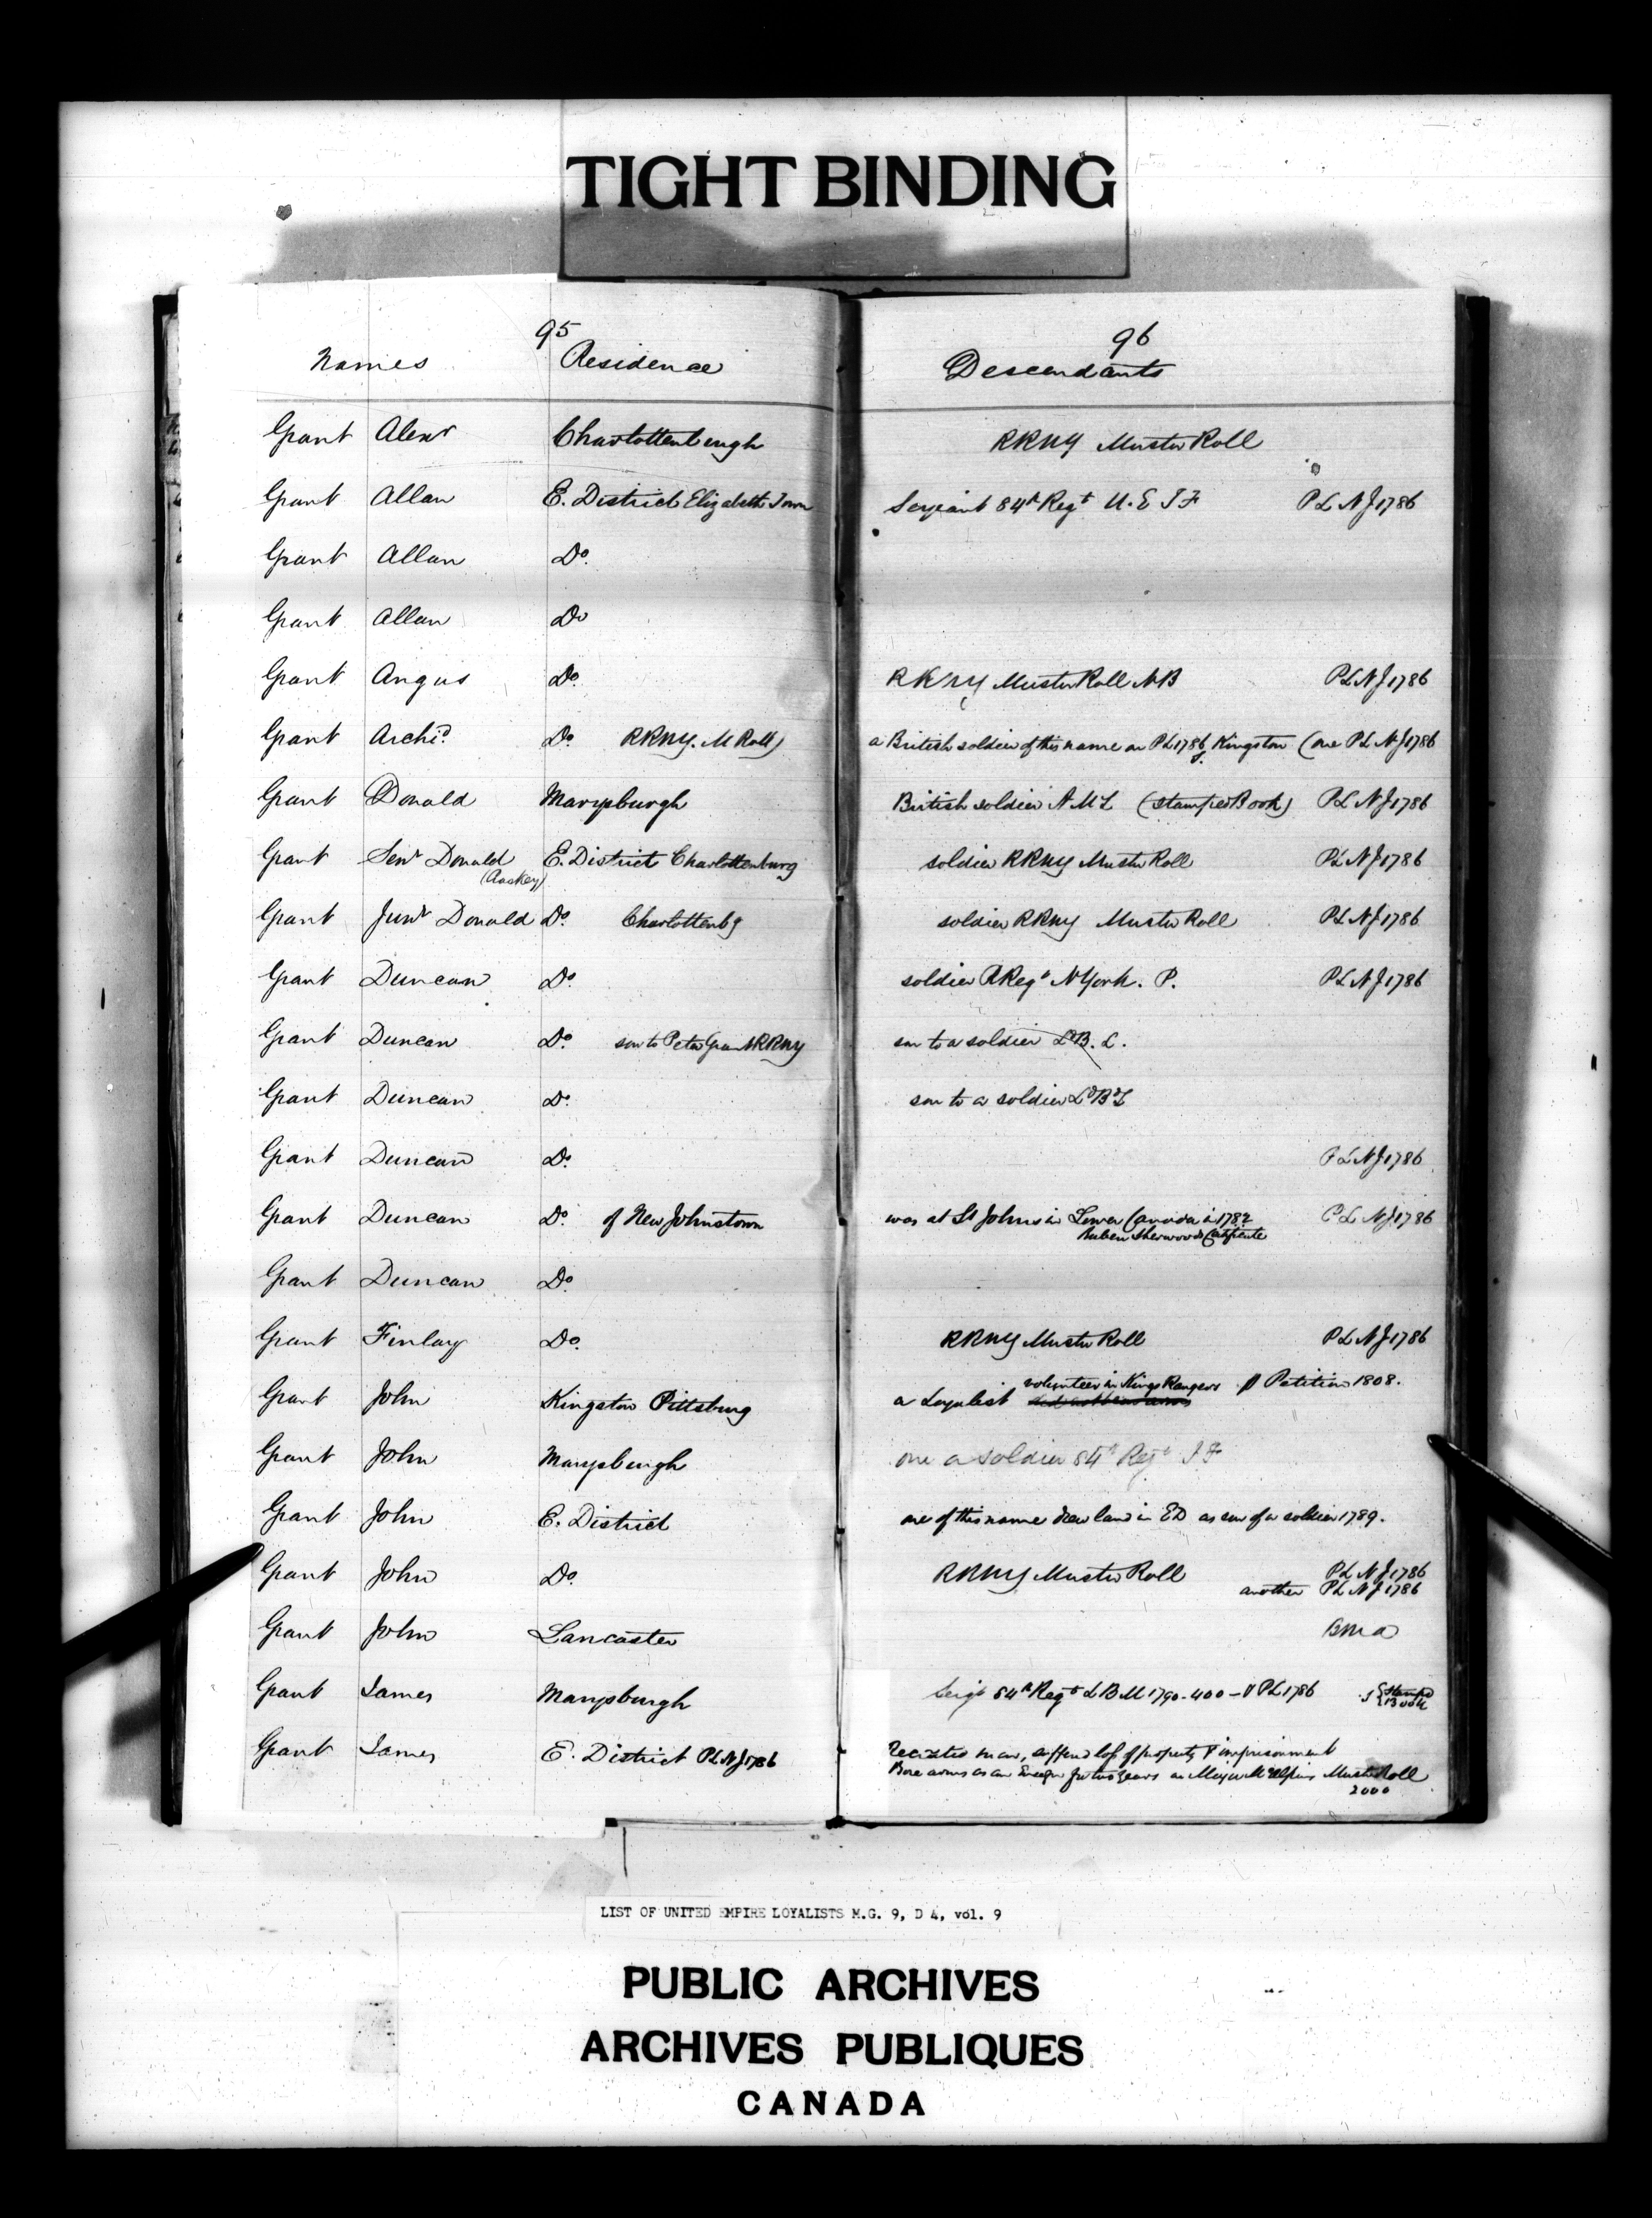 TIGHT BINDING
95
96
Names Residence Descendants
Grant Alexr Charlottenburgh RRNY Muster Roll
Grant Allan E. District Elizabeth Town Serjeant 84th Regt U.E IF PL NJ 1786
Grant Allan Do.
Grant Allan Do
Grant Angus Do. RRNY Muster Roll NB PL NJ 1786
Grant Archid. Do. RRNY. M Roll) a British soldier of this name on PL 1786 Kingston (one PL NJ 1786
Grant Donald Marysburgh British soldier AML (Stamped Book) PL NJ 1786
Grant Senr Donald E. District Charlottenburg soldier RRNY Muster Roll PL NJ 1786
Grant Junr Donald Do. Charlottenbg soldier RRNY Muster Roll PL NJ 1786
Grant Duncan Do. soldier RRegt NYork. P. PL NJ 1786
Grant Duncan Do. son to Peter Grant RRNY son to a soldier LdB. L.
Grant Duncan Do. son to a soldier LdBdL
Grant Duncan Do. PL NJ 1786
Grant Duncan Do. of New Johnstown was at St Johns in Lower Canada in 1782 PL NJ 1786
Ruben Sherwoods Certificate
Grant Duncan Do.
Grant Finlay Do. RRNY Muster Roll PL NJ 1786
volunteer in Kings Rangers Petition 1808.
Grant John Kingston Pittsburg a Loyalist
Grant John Marysburgh one a soldier 84th Regt IF
Grant John E. District one of this name drew land in ED as son of a soldier 1789.
Grant John Do. RRNY Muster Roll PL NJ 1786
another PL NJ 1786
Grant John Lancaster BMa
Grant James Marysburgh Serjt 84th Regt LBM 1790-400 - PL 1786 Stamped
Book
Grant James E. District PL NJ 1786 man, suffered loss of property & imprisonment
Bore arms as an Ensign for two years on Major McAlpins Muster Roll
2000
LIST OF UNITED EMPIRE LOYALISTS M.G. 9, D 4, vol. 9
PUBLIC ARCHIVES
ARCHIVES PUBLIQUES
CANADA